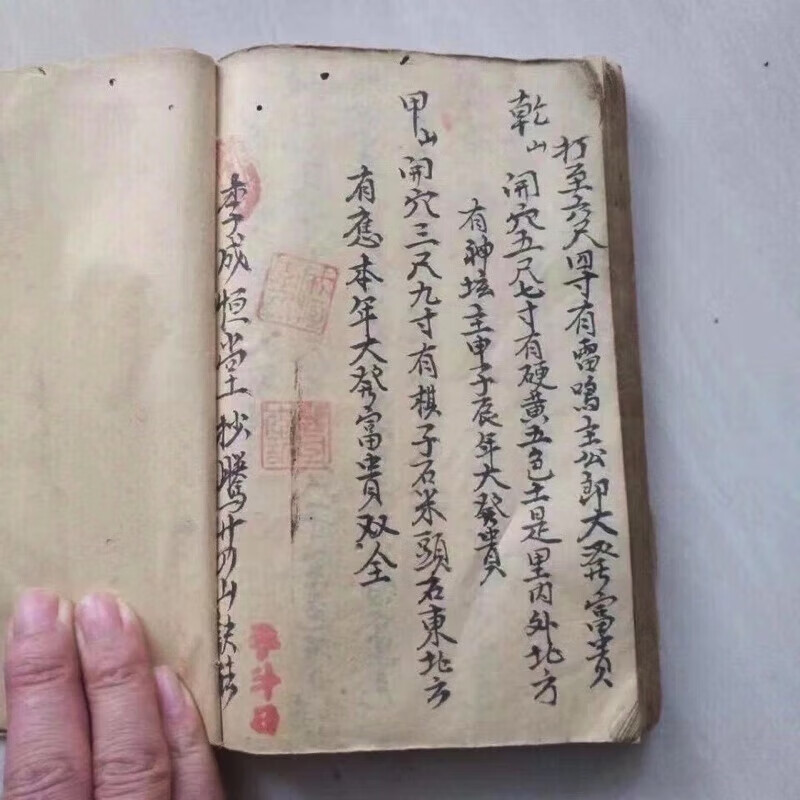 打至六尺四寸有雷鳴主公郎大發富貴
乾山 開穴五尺七寸有硬黃五色土是里内外北方
有神坛主申子辰年大發貴
甲山 開穴三尺九寸有棋子石米頭石東北方
有應本年大發富貴双全
李成恒堂抄騰廿四山訣法